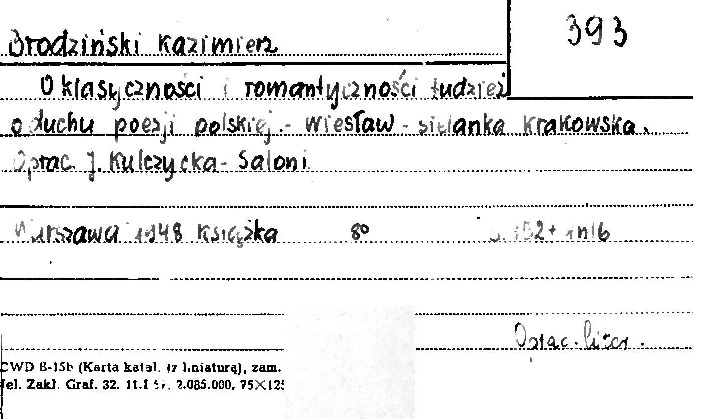 393
Brodziński Kazimierz
O klasyczności i romantyczności tudzież
o duchu poezji polskiej. - Wiesław - sielanka krakowska.
Oprac. J. Kulczycka-Saloni
Warszawa 1948 Książka 8° s. 152+1nlb
Oprac. liter.
CWD B-15b (Karta katal. (z liniaturą), zam.
Zakł. Graf. 32. 11.I 2.085.000, 75×125